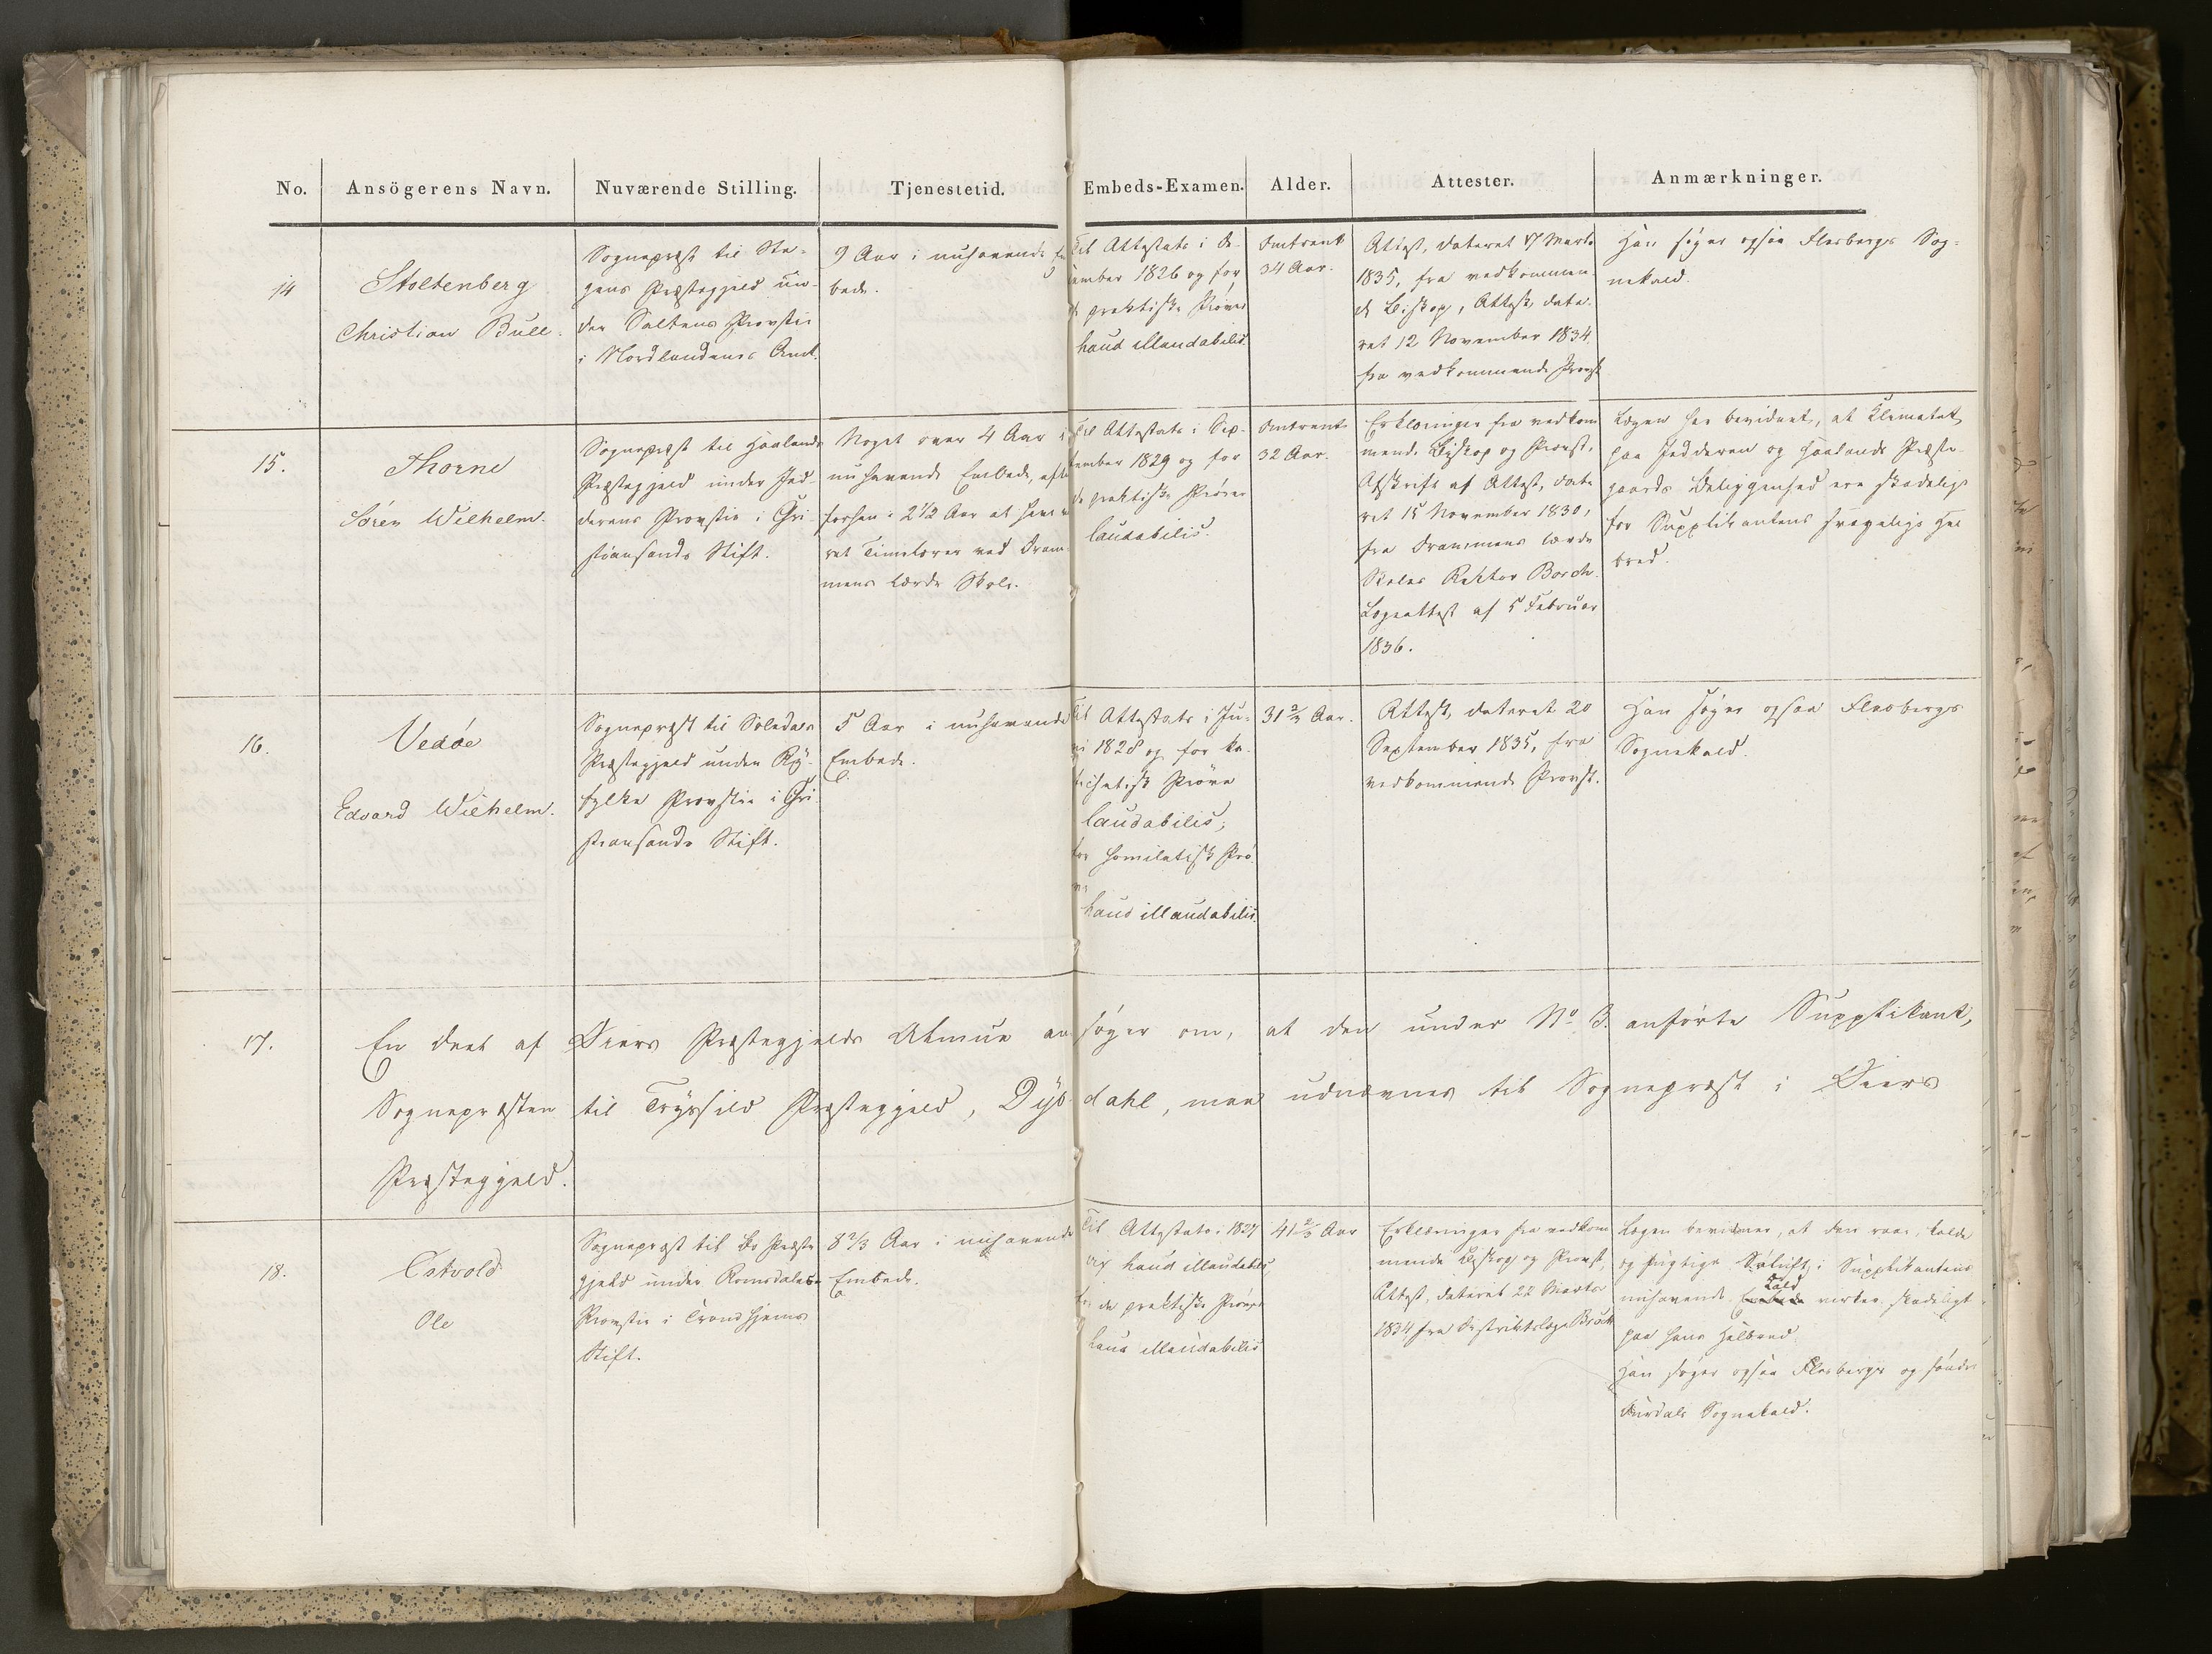 No. Ansögerens Navn. Nuværende Stilling. Tjenestetid. Embeds-Examen. Alder. Attester. Anmærkninger.
14
Stoltenberg
Christian Bull.
Sognepræst til Ste-
gens Præstegjeld un-
der Saltens Provstie
i Nordlandens Amt.
9 Aar i nuhavende Em
bede.
Til Attestats i De-
cember 1826 og for
de praktiske Prøver
haud illaudabilis.
Omtrent
34 Aar.
Attest, dateret 17 Marts
1835, fra vedkommen-
de Biskop, Attest, date-
ret 12 November 1834,
fra vedkommende Provst
Han søger ogsaa Flesbergs Sog-
nekald.
15.
Thorne
Sören Wilhelm.
Sognepræst til Haalands
Præstegjeld under Jed-
derens Provstie i Chri-
stiansands Stift.
Noget over 4 Aar i
nuhavende Embede, efter
forhen i 2 1/2 Aar at have væ
ret Timelærer ved Dram-
mens lærde Skole.
Til Attestats i Sep-
tember 1829 og for
de praktiske Prøver
laudabilis.
Omtrent
32 Aar.
Erklæringer fra vedkom
mende Biskop og Provst.
Afskrift af Attest, date
ret 15 November 1830,
fra Drammens lærde
Skoles Rektor Borch.
Lægeattest af 5 Februar
1836.
Lægen har bevidnet, at Klimatet
paa Jedderen og Haalands Præste-
gaards Beliggenhed ere skadelige
for Supplikantens svagelige Hel
bred.
16.
Vedöe
Edvard Wilhelm.
Sognepræst til Soledals
Præstegjeld under Ry-
fylke Provstie i Chri-
stiansands Stift.
5 Aar i nuhavende
Embede.
Til Attestats i Ju-
ni 1828 og for ka-
techetisk Prøve
laudabilis,
for homiletisk Prø-
ve
haud illaudabilis.
31 2/3 Aar.
Attest, dateret 20
September 1835, fra
vedkommende Provst.
Han søger ogsaa Flesbergs
Sognekald.
17.
En Deel af Øiers Præstegjelds Almue an søger om, at den under No 3. anførte Supplikant,
Sognepræsten til Tryssild Præstegjeld, Dyb dahl, maa udnævnes til Sognepræst i Øiers
Præstegjeld.
18.
Östvold
Ole
Sognepræst til Bo Præste
gjeld under Romsdalens
Provstie i Trondhjems
Stift.
8 2/3 Aar i nuhavende
Embede.
Til Attestats i 1827
haud illaudabilis,
for de praktiske Prøver
haud illaudabilis
41 2/3 Aar
Erklæringer fra vedkom
mende Biskop og Provst,
Attest, dateret 22 Marts
1834 fra Distriktslæge
Lægen bevidner, at den raae, kolde
og fugtige Søluft i Supplikantens
nuhavende Embede Kald virker skadeligt
paa hans Helbred.
Han søger ogsaa Flesbergs og søndre
Aurdals Sognekald.